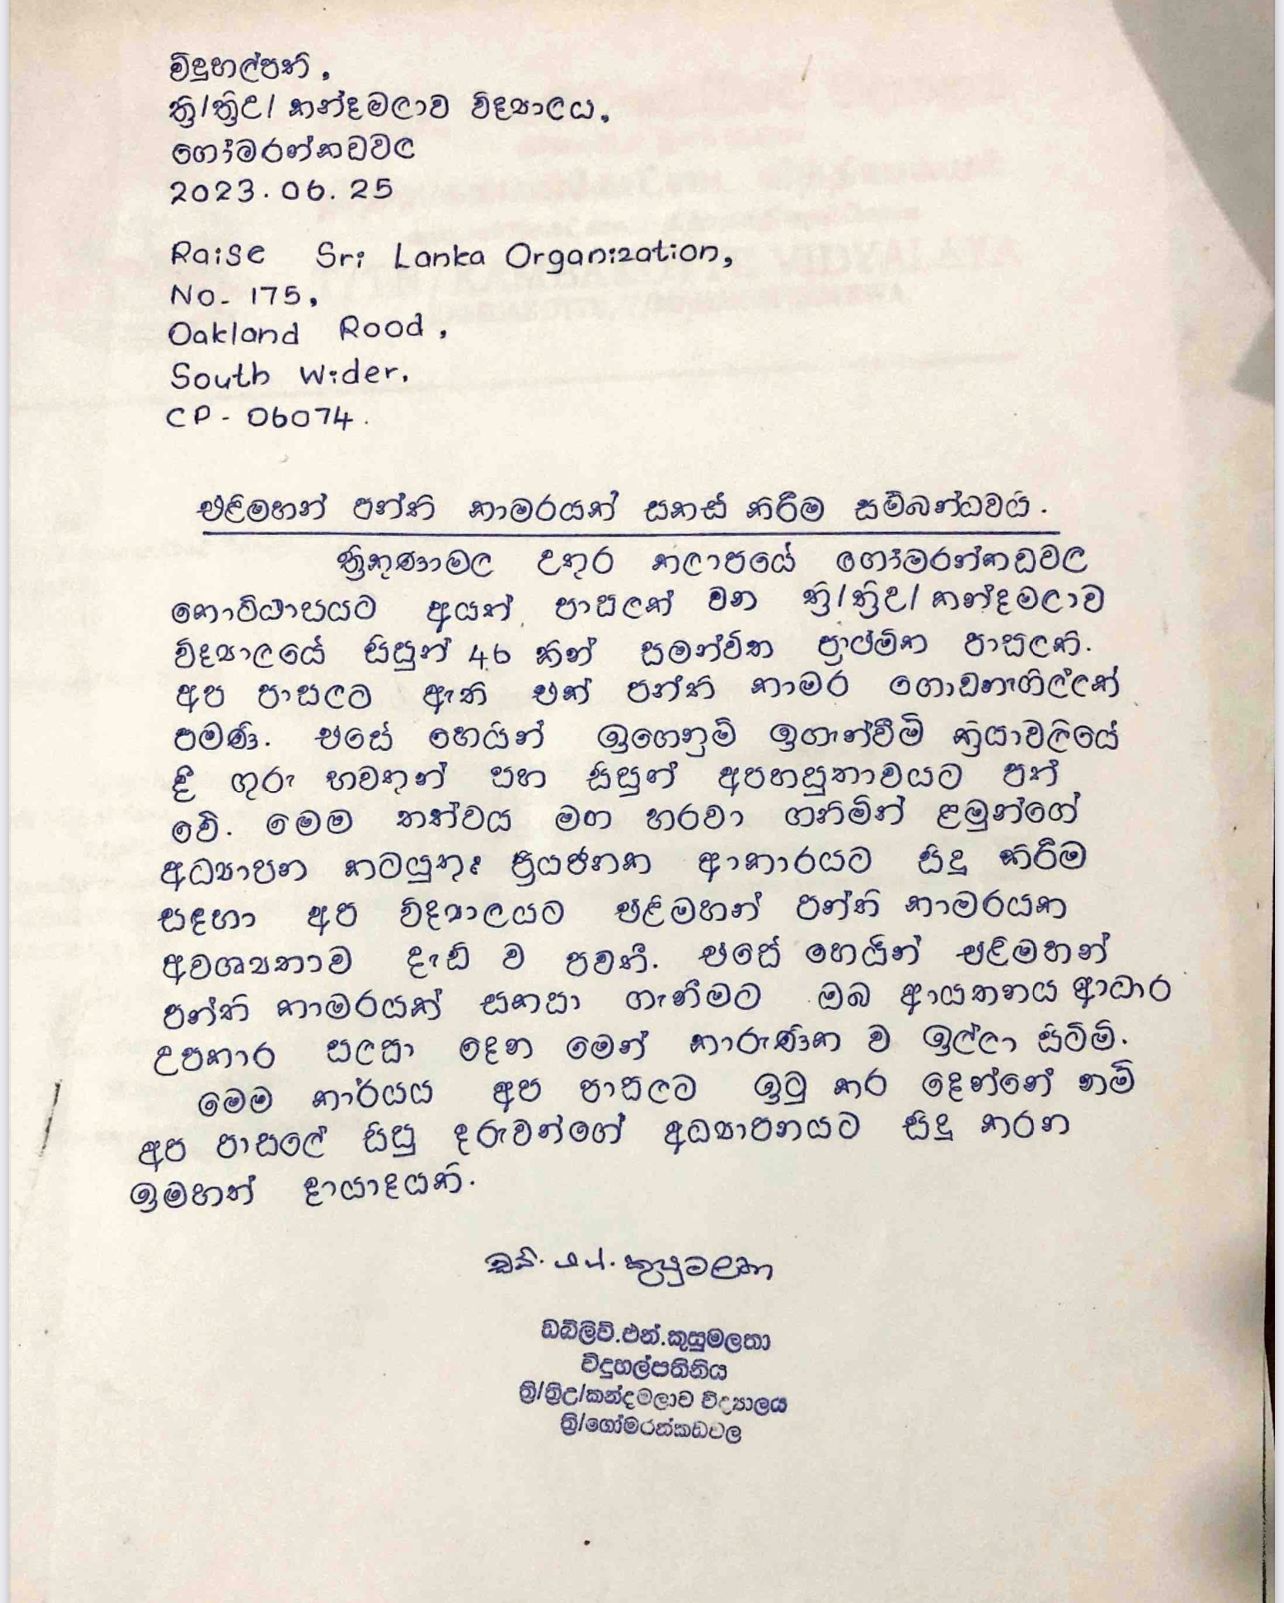 විදුහල්පති,
ත්‍රි/ත්‍රිඋ/ කන්දමලාව විද්‍යාලය,
ගෝමරන්කඩවල
2023.06.25
Raise Sri Lanka Organization,
No- 175,
Oakland Road,
South Wider,
CP - 06074.
එළිමහන් පන්ති කාමරයක් සකස් කිරීම සම්බන්ධවයි.
ත්‍රිකුණාමල උතුර කලාපයේ ගෝමරන්කඩවල
කොට්ඨාසයට අයත් පාසලක් වන ත්‍රි/ත්‍රිඋ/ කන්දමලාව
විද්‍යාලයේ සිසුන් 46 කින් සමන්විත ප්‍රාථමික පාසලකි.
අප පාසලට ඇති එක් පන්ති කාමර ගොඩනැගිල්ලක්
පමණි. එසේ හෙයින් ඉගෙනුම් ඉගැන්වීම් ක්‍රියාවලියේ
දී ගුරු භවතුන් සහ සිසුන් අපහසුතාවයට පත්
වේ. මෙම තත්වය මඟ හරවා ගනිමින් ළමුන්ගේ
අධ්‍යාපන කටයුතු ප්‍රියජනක ආකාරයට සිදු කිරීම
සඳහා අප විද්‍යාලයට එළිමහන් පන්ති කාමරයක
අවශ්‍යතාව දැඩි ව පවතී. එසේ හෙයින් එළිමහන්
පන්ති කාමරයක් සකසා ගැනීමට ඔබ ආයතනය ආධාර
උපකාර සලසා දෙන මෙන් කාරුණික ව ඉල්ලා සිටිමි.
මෙම කාර්යය අප පාසලට ඉටු කර දෙන්නේ නම්
අප පාසලේ සිසු දරුවන්ගේ අධ්‍යාපනයට සිදු කරන
ඉමහත් දායාදයකි.
කුසුමලතා
ඩබ්ලිව්.එන්.කුසුමලතා
විදුහල්පතිනිය
ත්‍රි/ත්‍රිඋ/කන්දමලාව විද්‍යාලය
ත්‍රි/ගෝමරන්කඩවල